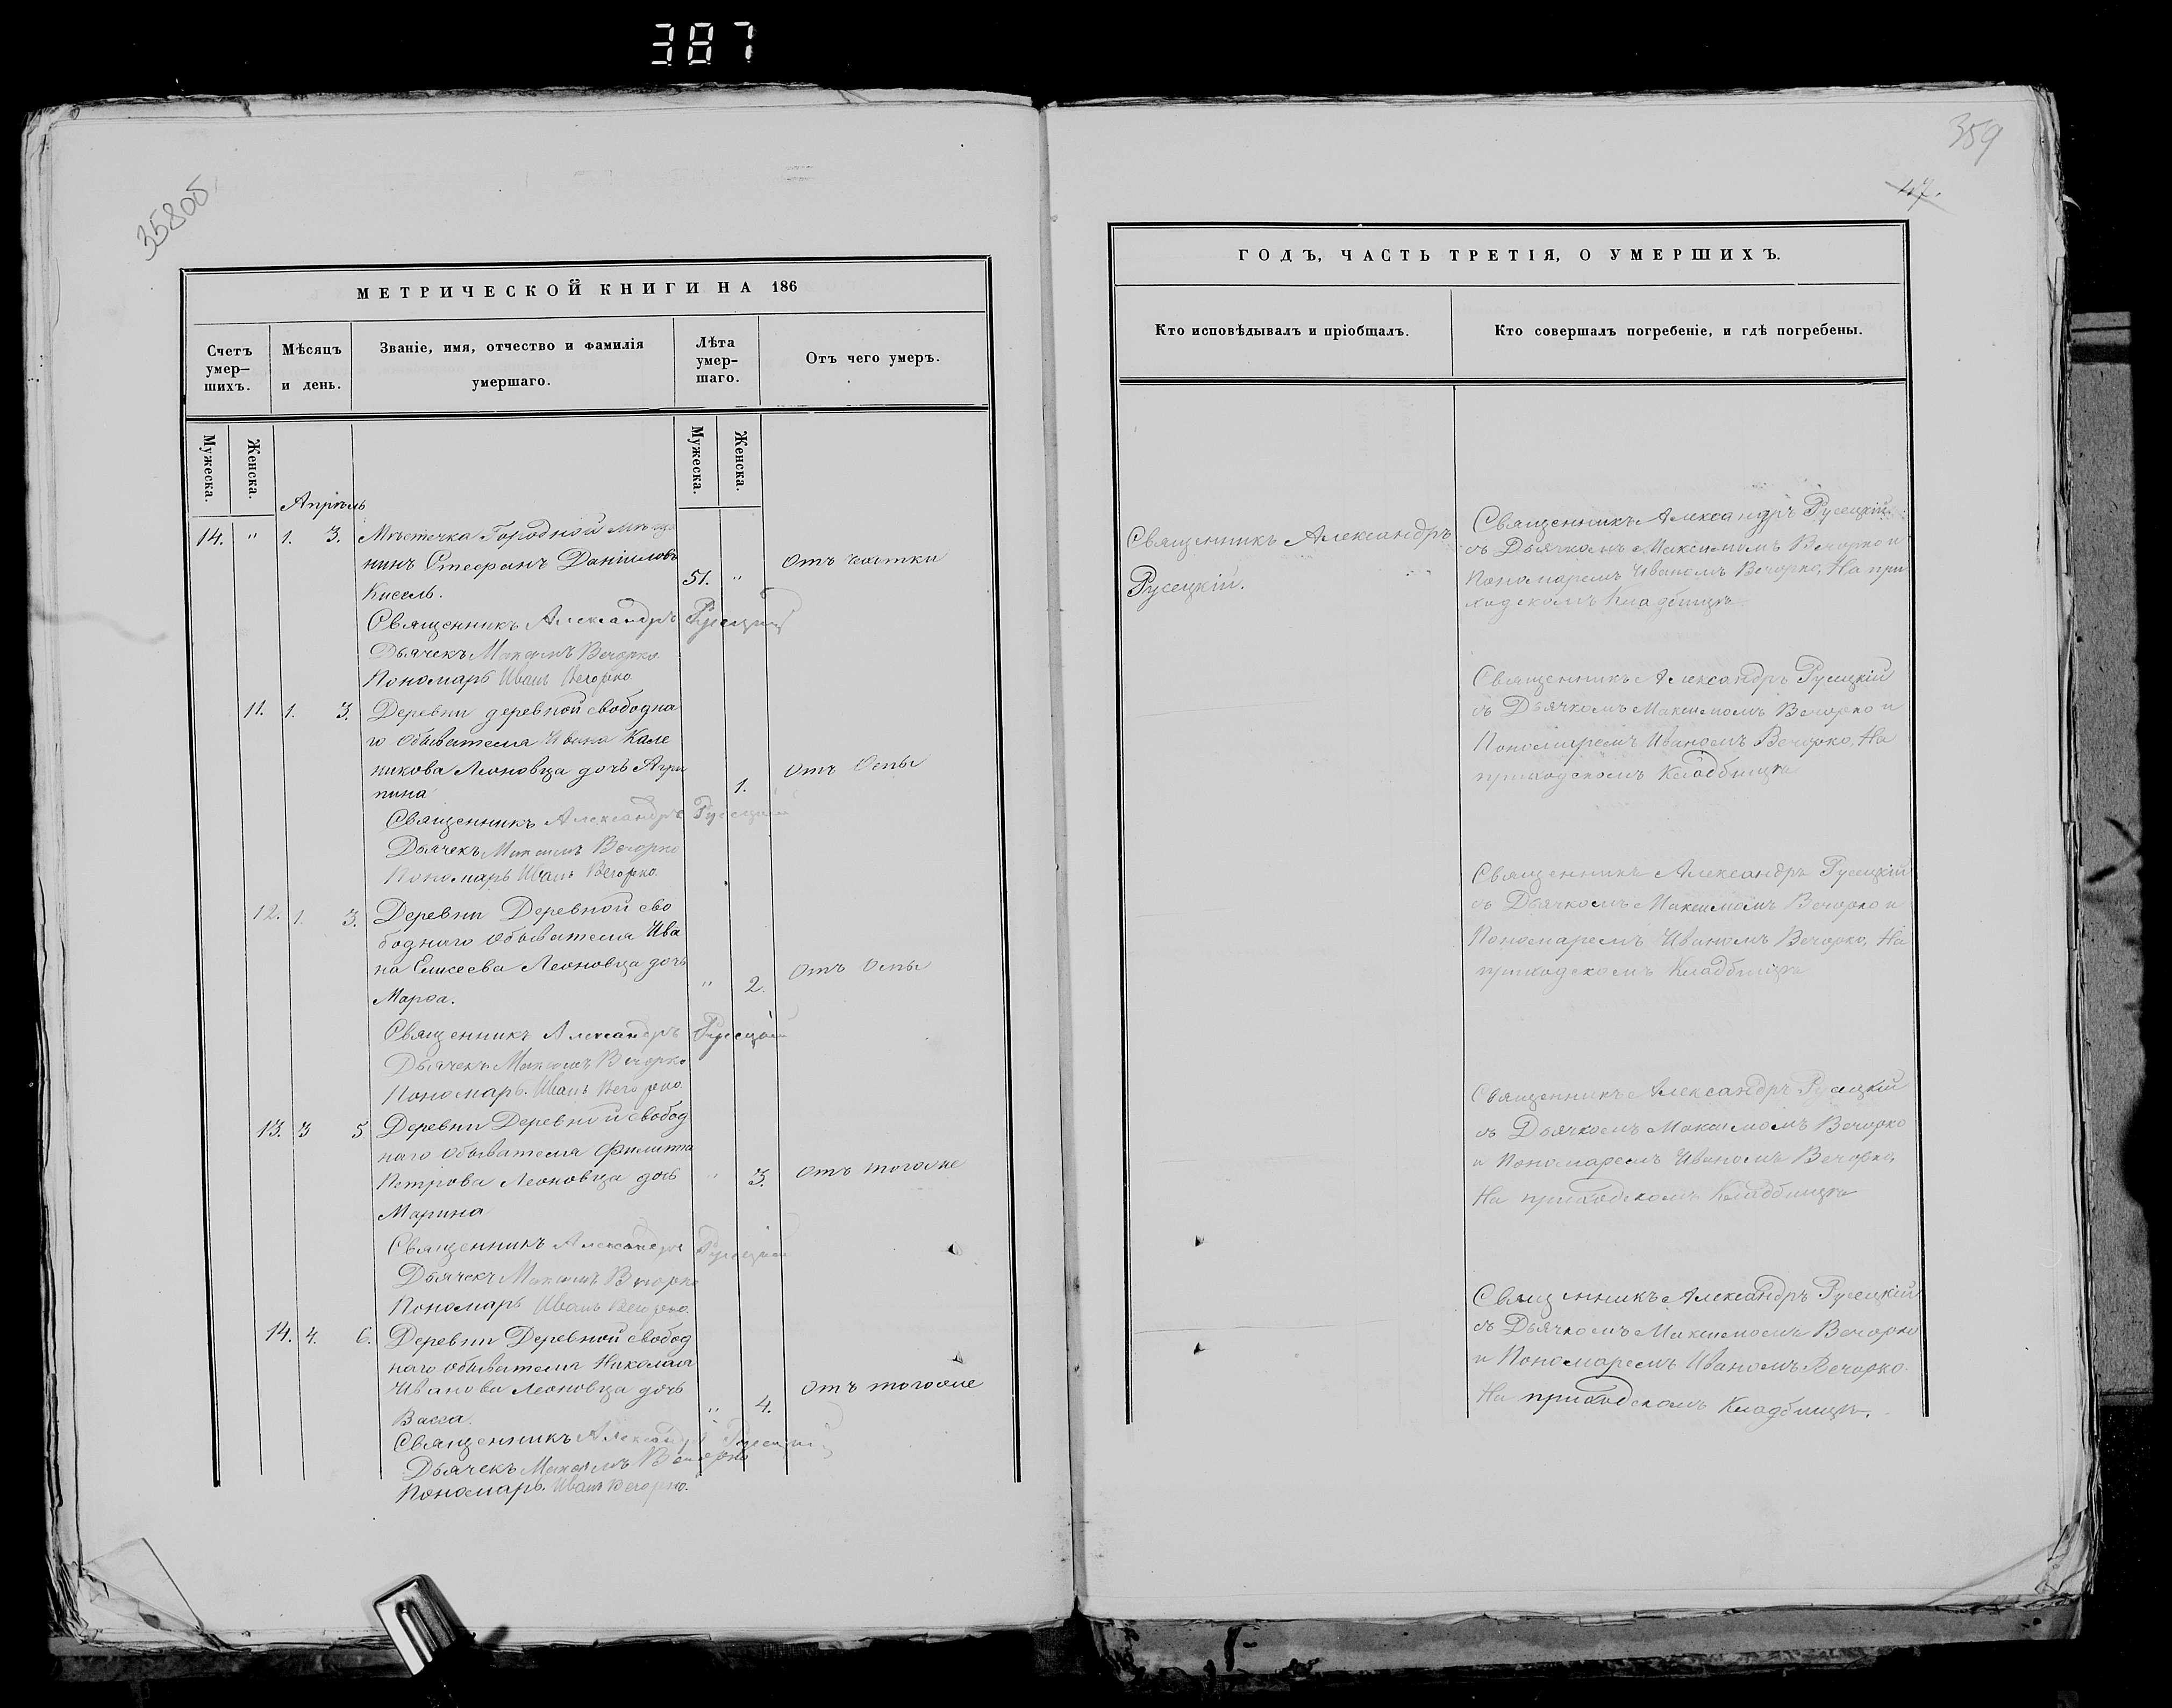 387
358об
359
47.
МЕТРИЧЕСКОЙ КНИГИ НА 186
Счетъ умер-шихъ.
Мѣсяцъ и день.
Званіе, имя, отчество и фамилія умершаго.
Лѣта умер-шаго.
Отъ чего умеръ.
Мужеска.
Женска.
Мужеска.
Женска.
Апрѣль
14. " 1. 3. Мѣстечка Городной мѣща
нинъ Стефанъ Даніиловъ
Кисель. 51. " Отъ
Священникъ Александръ Русецкій
Дьячекъ Максимъ Вечорко
Пономарь Иванъ Вечорко
11. 1. 3. Деревни деревной свободна
го обывателя Ивана Кале
никова Леоновца дочь Агри
пина 1. Отъ Оспы
Священникъ Александръ Русецкій
Дьячекъ Максимъ Вечорко
Пономарь Иванъ Вечорко.
12. 1. 3. Деревни Деревной сво
боднаго обывателя Ива
на Еликсева Леоновца дочь
Марѳа. " 2. Отъ Оспы
Священникъ Александръ Русецкій
Дьячекъ Максимъ Вечорко
Пономарь Иванъ Вечорко.
13. 3 5. Деревни Деревной свобод
наго обывателя Филиппа
Петрова Леоновца дочь " 3. Отъ тогоже
Марина
Священникъ Александръ Русецкій
Дьячекъ Максимъ Вечорко
Пономарь Иванъ Вечорко.
14. 4. 6. Деревни Деревной свобод
наго обывателя Николая
Иванова Леоновца дочь
Васса. " 4. Отъ тогоже
Священникъ Александръ Русецкій
Дьячекъ Максимъ Вечорко
Пономарь Иванъ Вечорко.
ГОДЪ, ЧАСТЬ ТРЕТІЯ, О УМЕРШИХЪ.
Кто исповѣдывалъ и пріобщалъ.
Кто совершалъ погребеніе, и гдѣ погребены.
Священникъ Александръ
Русецкій.
Священникъ Александръ Русецкій
съ Дьячкомъ Максимомъ Вечорко и
Пономаремъ Иваномъ Вечорко, На при
ходскомъ Кладбищѣ
Священникъ Александръ Русецкій
съ Дьячкомъ Максимомъ Вечорко и
Пономаремъ Иваномъ Вечорко, На
приходскомъ Кладбищѣ
Священникъ Александръ Русецкій
съ Дьячкомъ Максимомъ Вечорко и
Пономаремъ Иваномъ Вечорко, На
приходскомъ Кладбищѣ
Священникъ Александръ Русецкій
съ Дьячкомъ Максимомъ Вечорко
и Пономаремъ Иваномъ Вечорко,
На приходскомъ Кладбищѣ
Священникъ Александръ Русецкій
съ Дьячкомъ Максимомъ Вечорко
и Пономаремъ Иваномъ Вечорко.
На приходскомъ Кладбищѣ.